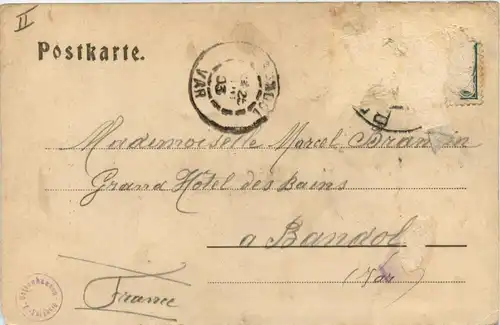 II
Postkarte.
VAR
03
Mademoiselle Marcel
Grand Hotel des Bains
a Bandol
(Var)
France